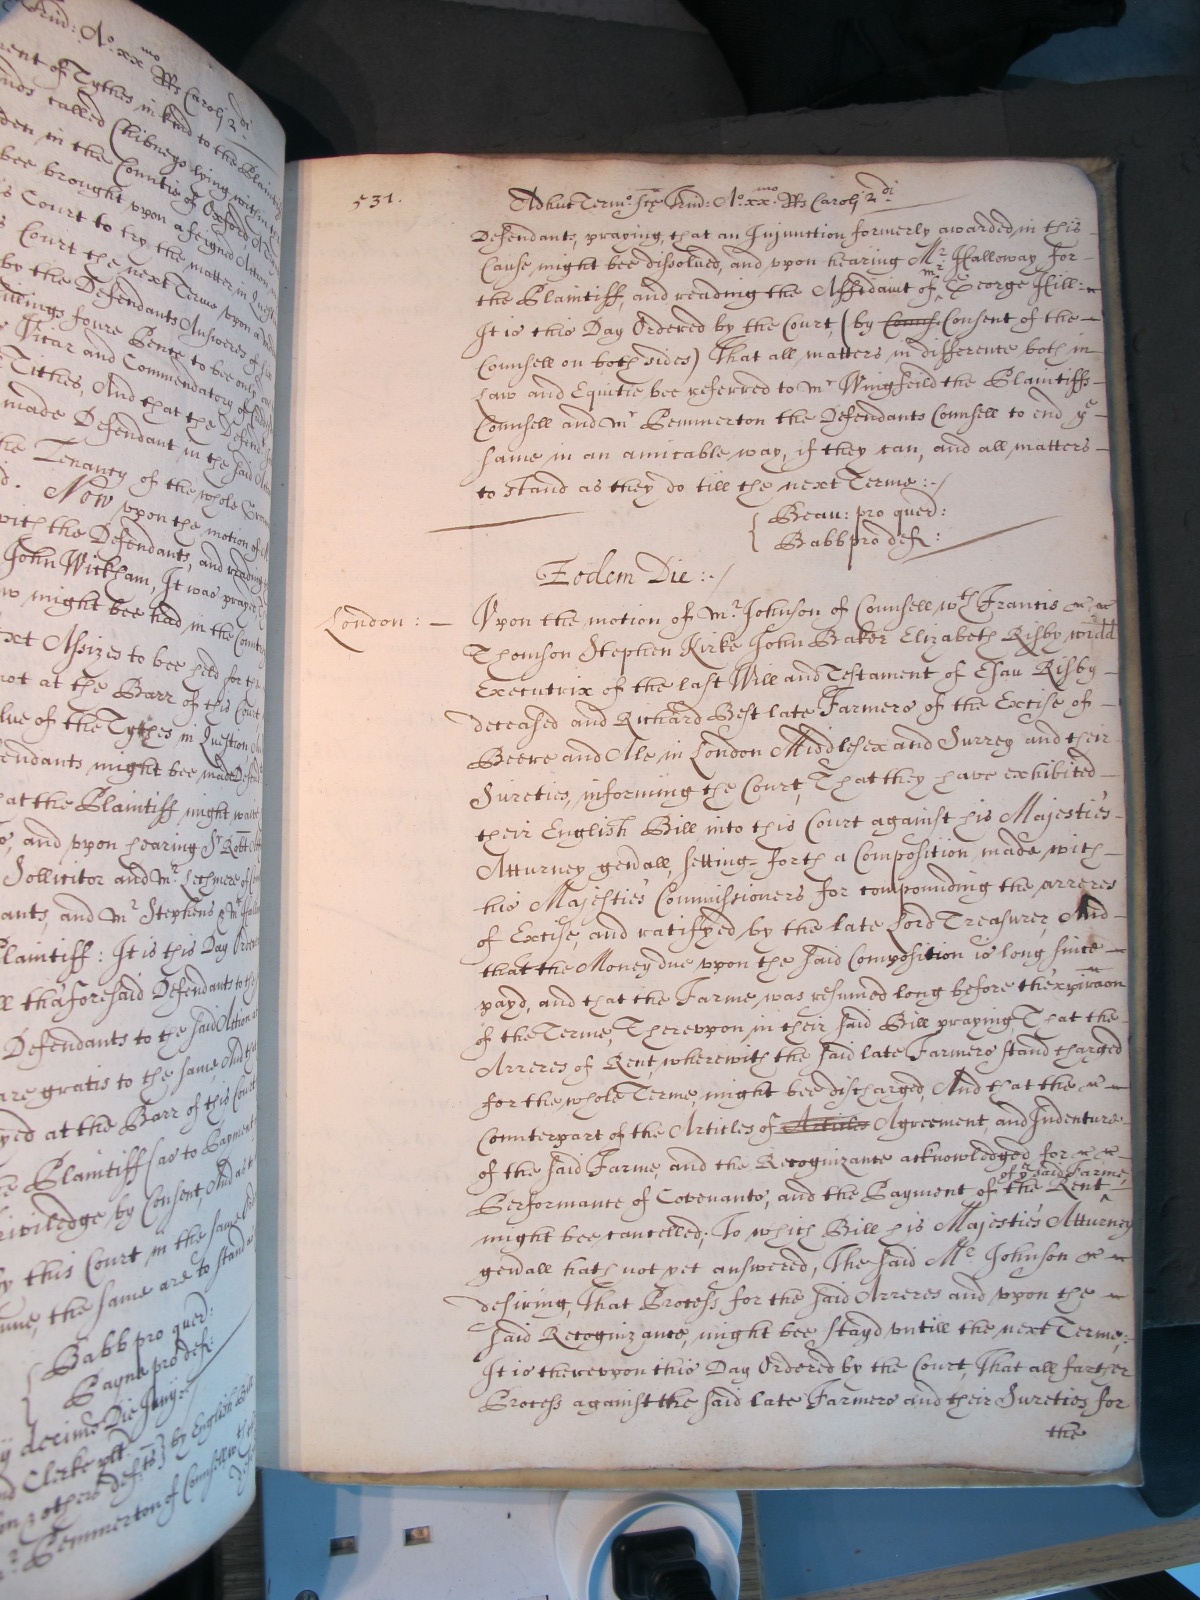 Trin: Ao. xxmo Rs Caroli 2di
ment of Tythes in kind to the Plaintiff
lands called Chibneys lying within
den in the Countie of Oxford,
bee brought upon a feigned Action
is Court to try the matter in
s Court the next Terme, upon a
by the Defendants Answeres
illings foure Pence to bee
Vicar and Commendatory of
Tithes, And that the Defend
made Defendant in the said
the Tenancy of the whole
d. Now upon the motion of
with the Defendants, and reading
John Wickham, It was prayed
w might bee had in the County
ext Assizes to bee held for the
not at the Barr of this Court
lue of the Tythes in Question,
endants might bee made
hat the Plaintiff might
o, and upon hearing Sr Robt
Sollicitor and Mr. Lechmere of
ants, and Mr Stephens & Mr
Plaintiff: It is this Day Ordered
ll th'aforesaid Defendants to
Defendants to the said Action
are gratis to the same And
yed at the Barr of this Court
e Plaintiff (as to Payment
riviledge by Consent, And
y this Court in the same
ume, the same are to stand
Babb pro quer:
Payne pro defte:
decimo Die Junij:
nd Clerke
on & others defts by English Bill
r. Pemmerton of Counsell wth
531.
Adhuc Termo: Ste Trin: Ao. xxmo. Rs Caroli 2di
Defendants, praying, that an Injunction formerly awarded in this
Cause might bee dissolved, and upon hearing Mr. Halloway for
the Plaintiff, and reading the Affidavit of Mr. George Hill:
It is this Day Ordered by the Court, (by Couns. Consent of the
Counsell on both sides) That all matters in difference both in
Law and Equitie bee referred to Mr Wingfeild the Plaintiffs
Counsell and Mr Pemmerton the Defendants Counsell to end ye
same in an amicable way, if they can, and all matters
to stand as they do till the next Terme:-/
Beau: pro quer:
Babb pro defte:
Eodem Die:-/
London: Upon the motion of Mr. Johnson of Counsell wth Francis
Thomson Stephen Kirke John Baker Elizabeth Risby widd
Executrix of the last Will and Testament of Esau Risby
deceased and Richard Best late Farmers of the Excise of
Beere and Ale in London Middlesex and Surrey and their
Sureties, informing the Court, That they have exhibited
their English Bill into this Court against his Majesties
Atturney genall, setting forth a Composition made with
his Majesties Commissioners for compounding the arreres
of Excise, and ratifyed by the late Lord Treasurer, And
that the Money due upon the said Composition is long since
payd, and that the Farme was resumed long before thexpiracon
of the Terme, Thereupon in their said Bill praying, That the
Arreres of Rent wherewith the said late Farmers stand charged
for the whole Terme, might bee discharged, And that the
Counterpart of the Articles of Articles Agreement, and Indenture
of the said Farme, and the Recognizance acknowledged for
Performance of Covenants, and the Payment of the Rent of ye said Farme,
might bee cancelled; To which Bill his Majesties Atturney
genall hath not yet answered, The said Mr. Johnson
desiring, That Process for the said Arreres and upon the
said Recognizance, might bee stayd untill the next Terme:
It is thereupon this Day Ordered by the Court, That all farther
Process against the said late Farmers and their Sureties for
the